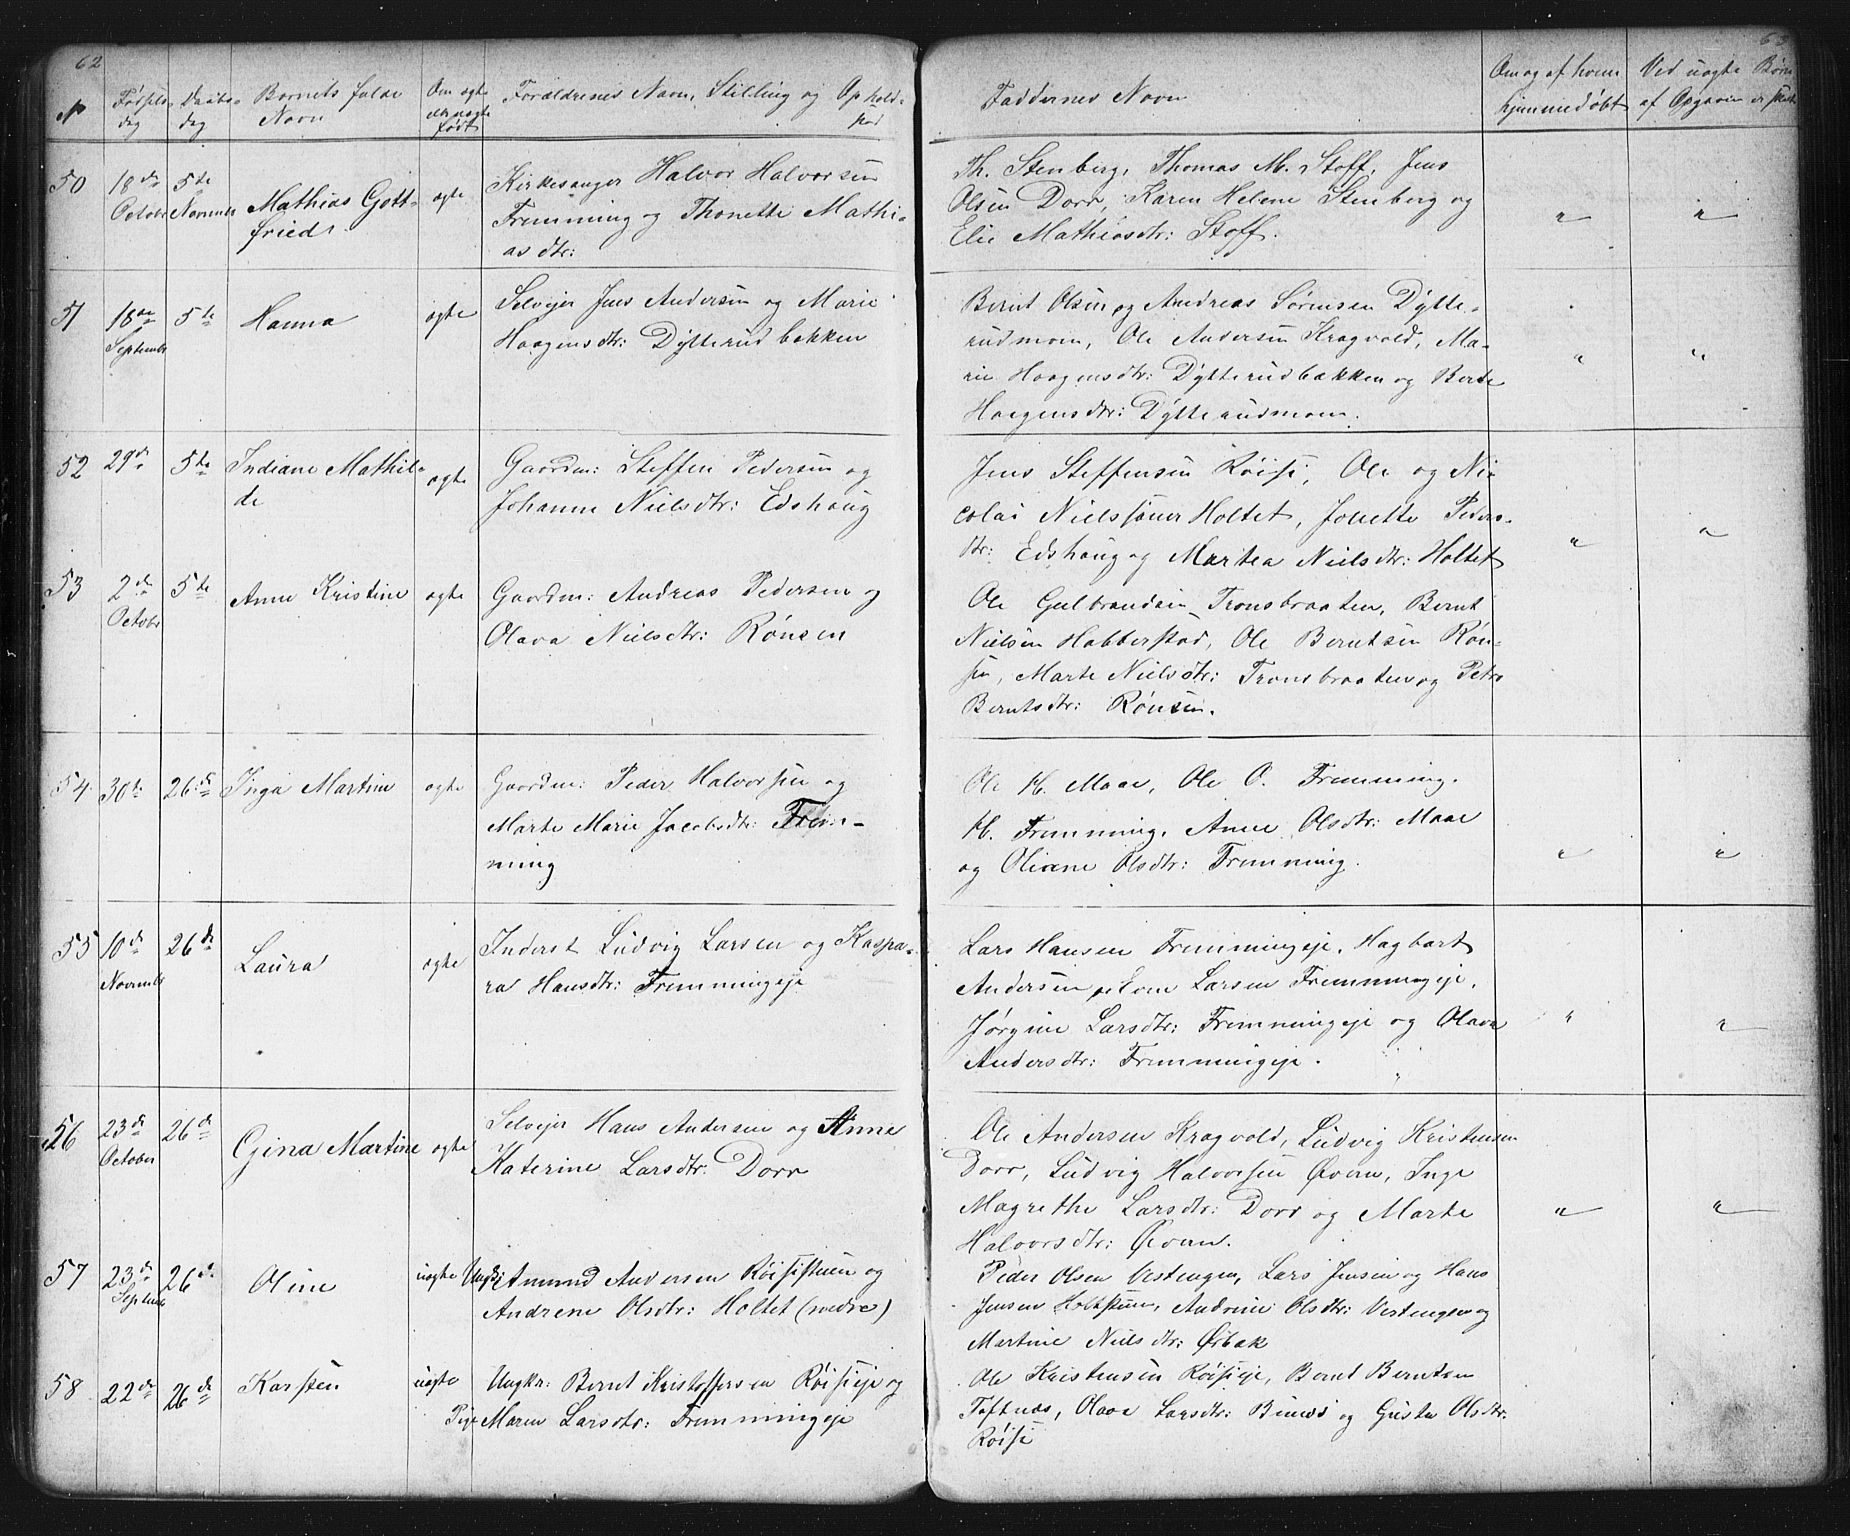 62
N
Fødsels-
dag
Daabs-
dag
Barnets fulde
Navn
Om ægte
eller uægte
født
Forældrenes Navn, Stilling og Ophold-
sted
50
18de
October
5te
November
Mathias Gott-
fried
ægte
Kirkesanger Halvor Halvorsen
Fremming og Thonette Mathi-
asdtr:
51
18de
September
5te
Hanna
ægte
Selvejer Jens Andersen og Marie
Haagensdtr: Dytterudbakken
52
29de
5te
Indiane Mathil-
de
ægte
Gaardm: Steffen Pedersen og
Johanne Nielsdtr: Edshaug
53
2de
October
5te
Anne Kristine
ægte
Gaardm: Andreas Pedersen og
Olava Nielsdtr: Rønsen
54
30te
26de
Inga Martine
ægte
Gaardm: Peder Halvorsen og
Marte Marie Jacobsdtr: Frem-
ming
55
10de
November
26de
Laura
ægte
Inderst Ludvig Larsen og Kaspa-
ra Hansdtr: Fremmingeje
56
23de
October
26de
Gina Martine
ægte
Selvejer Hans Andersen og Anne
Katerine Larsdtr. Dorr
57
23de
Septemb
26de
Oline
uægte
Ungkr: Amund Andersen Røisistuen og
Andrene Olsdtr: Holtet (nedre)
58
22de
26de
Karsten
uægte
Ungkr: Bernt Kristoffersen Røisieje og
Pige Maren Larsdtr: Fremmingeje
63
Faddernes Navn
Om og af hvem
hjemmedøbt
Ved uægte Børn
af Opgaven
Th. Stenberg, Thomas M. Stoff, Jens
Olsen Dorr, Karen Helene Stenberg og
Elie Mathiasdtr: Stoff.
"
"
Bernt Olsen og Andreas Sørensen Dytte-
rudmoen, Ole Andersen Kragvold, Ma-
rie Haagensdtr: Dytterudbækken og Berte
Haagensdtr: Dytterudmoen.
"
"
Jens Steffensen Røisi, Ole og Ni-
colai Nielssøner Holtet, Jonette Peders-
dtr: Edshaug og Martea Nielsdtr: Holtet
"
"
Ole Gulbrandsen Tronsbraaten, Bernt
Nielsen Habberstad, Ole Berntsen Røn-
sen, Marte Nielsdtr: Tronsbraaten og Petra
Berntsdtr: Rønsen.
Ole H. Maae, Ole O. Fremming.
H. Fremming, Anne Olsdtr: Maae
og Oliane Olsdtr: Fremming.
"
"
Lars Hansen Fremmingeje, Hagbart
Andersen, Even Larsen Fremmingeje,
Jørgine Larsdtr: Fremmingeje og Olava
Andersdtr: Fremmingeje.
"
"
Ole Andersen Kragvold, Ludvig Kristensen
Dorr, Ludvig Halvorsen Øvern, Inge
Magrethe Larsdtr: Dorr og Marte
Halvorsdtr: Øvern.
"
"
Peder Olsen Vestengen, Lars Jensen og Hans
Jensen Holtstuen, Andrine Olsdtr: Vestengen og
Martine Nielsdtr: Ørbak
Ole Kristensen Røisieje, Bernt Berntsen
Toftnæs, Olava Larsdtr: Bunes og Gusta Olsdtr:
Røisi